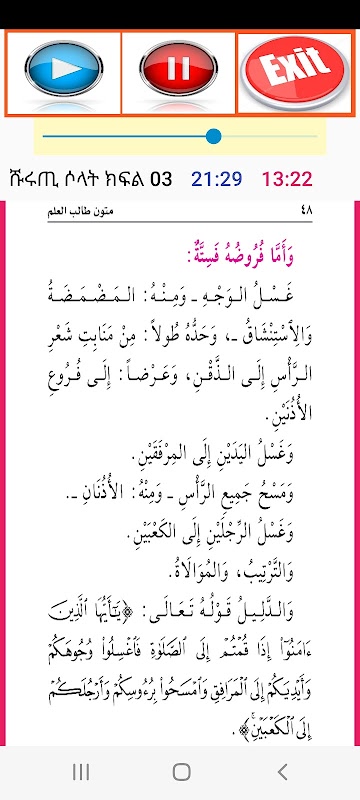 Exit
ሹሩጢ ሶላት ክፍል 03 21:29 13:22
متون طالب العلم ٤٨
وَأَمَّا فُرُوضُهُ فَسِتَّةٌ:
غَسْلُ الوَجْهِ ـ وَمِنْهُ: المَضْمَضَةُ
وَالِاسْتِنْشَاقُ ـ، وَحَدُّهُ طُولاً: مِنْ مَنَابِتِ شَعْرِ
الرَّأْسِ إِلَى الذَّقْنِ، وَعَرْضاً: إِلَى فُرُوعِ
الأُذُنَيْنِ.
وَغَسْلُ اليَدَيْنِ إِلَى المِرْفَقَيْنِ.
وَمَسْحُ جَمِيعِ الرَّأْسِ ـ وَمِنْهُ: الأُذُنَانِ ـ.
وَغَسْلُ الرِّجْلَيْنِ إِلَى الكَعْبَيْنِ.
وَالتَّرْتِيبُ، وَالمُوَالَاةُ.
وَالدَّلِيلُ قَوْلُهُ تَعَالَى: ﴿يَٰٓأَيُّهَا الَّذِينَ
ءَامَنُوٓا۟ إِذَا قُمْتُمْ إِلَى الصَّلَوٰةِ فَاغْسِلُوا۟ وُجُوهَكُمْ
وَأَيْدِيَكُمْ إِلَى الْمَرَافِقِ وَامْسَحُوا۟ بِرُءُوسِكُمْ وَأَرْجُلَكُمْ
إِلَى الْكَعْبَيْنِۚ﴾.